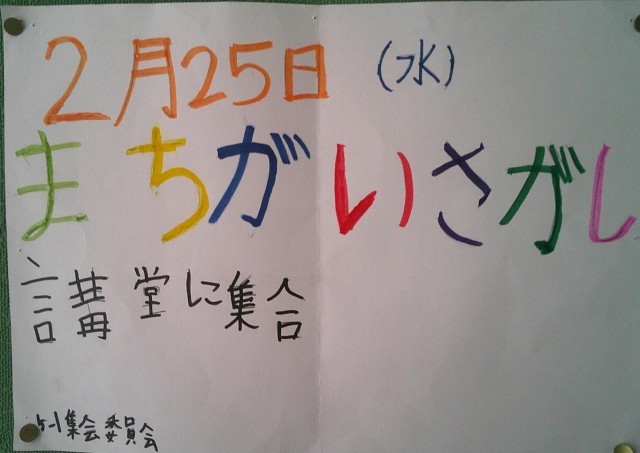 2月25日 (水)
まちがいさがし
講堂に集合
集会委員会